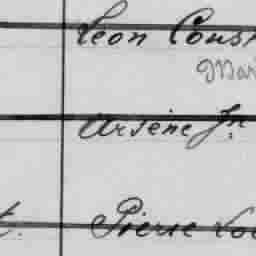 Leon Cous
Mari
Arsène Jn
t. Pierre Lou